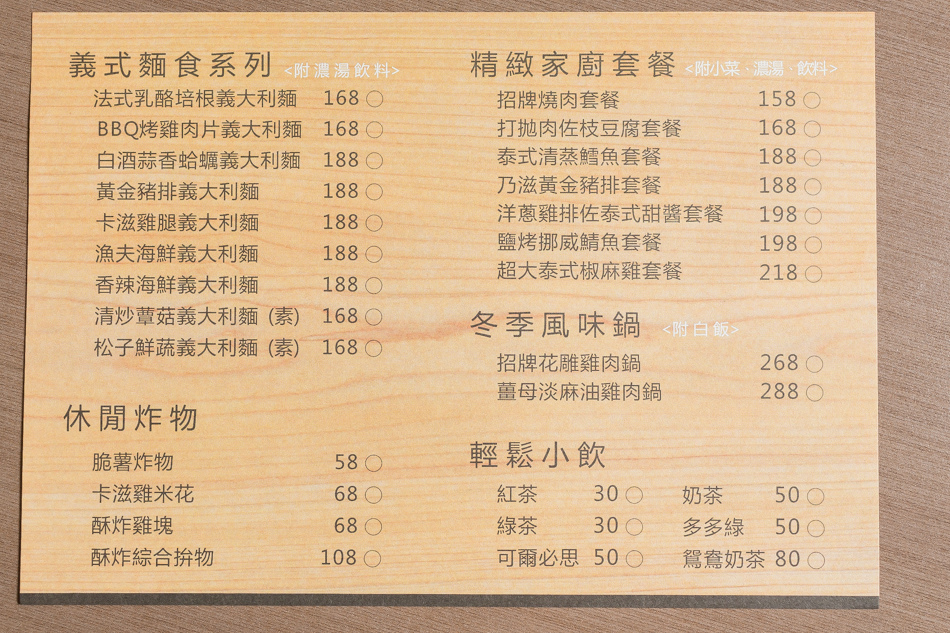 義式麵食系列 <附濃湯飲料>
法式乳酪培根義大利麵 168 ○
BBQ烤雞肉片義大利麵 168 ○
白酒蒜香蛤蠣義大利麵 188 ○
黃金豬排義大利麵 188 ○
卡滋雞腿義大利麵 188 ○
漁夫海鮮義大利麵 188 ○
香辣海鮮義大利麵 188 ○
清炒蕈菇義大利麵 (素) 168 ○
松子鮮蔬義大利麵 (素) 168 ○
休閒炸物
脆薯炸物 58 ○
卡滋雞米花 68 ○
酥炸雞塊 68 ○
酥炸綜合拚物 108 ○
精緻家廚套餐 <附小菜·濃湯·飲料>
招牌燒肉套餐 158 ○
打拋肉佐枝豆腐套餐 168 ○
泰式清蒸鱈魚套餐 188 ○
乃滋黃金豬排套餐 188 ○
洋蔥雞排佐泰式甜醬套餐 198 ○
鹽烤挪威鯖魚套餐 198 ○
超大泰式椒麻雞套餐 218 ○
冬季風味鍋 <附白飯>
招牌花雕雞肉鍋 268 ○
薑母淡麻油雞肉鍋 288 ○
輕鬆小飲
紅茶 30 ○ 奶茶 50 ○
綠茶 30 ○ 多多綠 50 ○
可爾必思 50 ○ 鴛鴦奶茶 80 ○